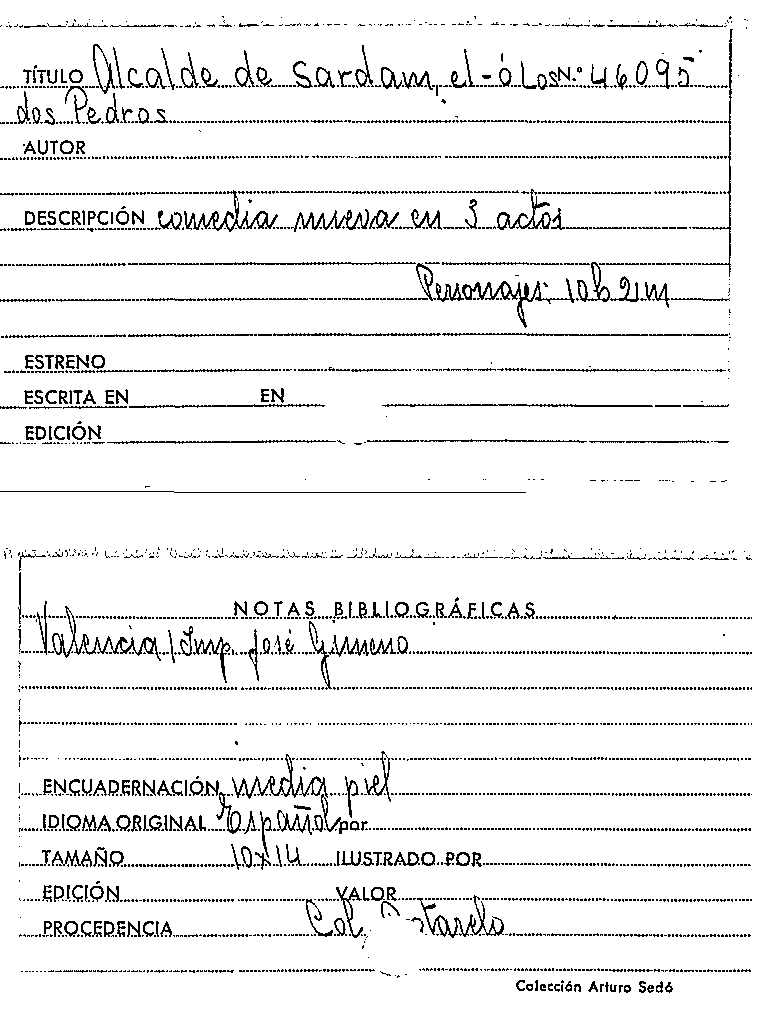 TÍTULO Alcalde de Sardam, el - ó Los N.º 46095
dos Pedros
AUTOR
DESCRIPCIÓN comedia nueva en 3 actos
Personajes: 10h 2m
ESTRENO
ESCRITA EN EN
EDICIÓN
NOTAS BIBLIOGRÁFICAS
Valencia / Imp. José Gimeno
ENCUADERNACIÓN media piel
IDIOMA ORIGINAL Español por
TAMAÑO 10x14 ILUSTRADO POR
EDICIÓN VALOR
PROCEDENCIA Col.
Colección Arturo Sedó